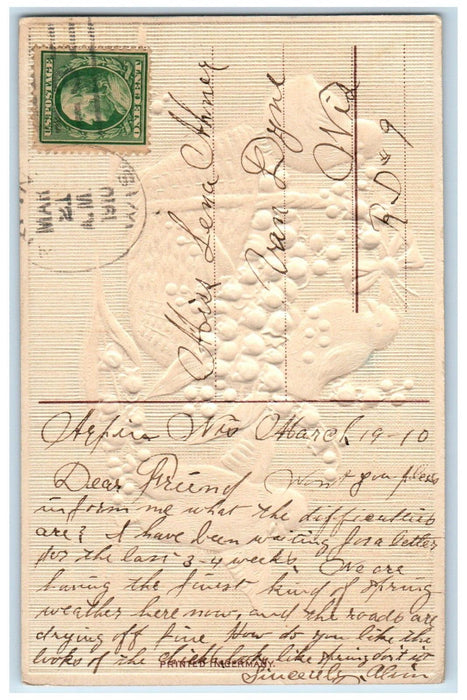 U.S. POSTAGE
ONE CENT
MAR
21
1910
Miss Lena Abner
Van Dyne
Wis
RD #9
Arpin Wis March 19-10
Dear Friend Won't you please
inform me what the difficulties
are? I have been waiting for a letter
for the last 3-4 weeks. We are
having the finest kind of spring
weather here now, and the roads are
drying off fine How do you like the
looks of the chick looks like spring don't it
PRINTED IN GERMANY.
Sincerely, Alvin